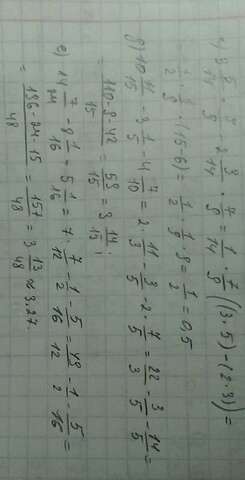 г) 3 5/14 · 7/9 - 2 3/14 · 7/9 = 1/14 · 7/9 ((3·5)-(2·3)) =
1/2 · 1/9 · (15-6) = 1/2 · 1/9 · 9 = 1/2 = 0,5
g) 10 11/15 - 3 1/5 - 4 7/10 = 2 · 11/3 - 3/5 - 2 · 7/5 = 22/3 - 3/5 - 14/5 =
= 110-9-42/15 = 59/15 = 3 14/15 ;
e) 14 7/24 - 8 1/16 - 5 1/16 = 7 · 7/12 - 1/2 - 5/16 = 49/12 - 1/2 - 5/16 =
= 196-24-15/48 = 157/48 = 3 13/48 ≈ 3.27.